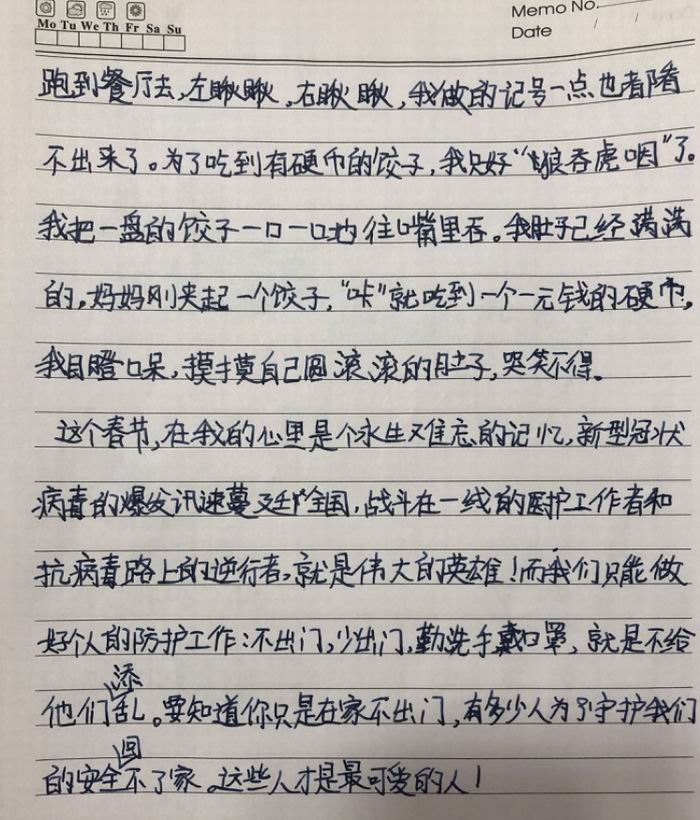 Mo Tu We Th Fr Sa Su
Memo No.
Date / /
跑到餐厅去,左瞅瞅,右瞅瞅,我做的记号一点也看
不出来了。为了吃到有硬币的饺子,我只好“狼吞虎咽”了。
我把一盘的饺子一口一口地往嘴里吞。我肚子已经满满
的,妈妈刚夹起一个饺子,“咔”就吃到一个一元钱的硬币,
我目瞪口呆,摸摸自己圆滚滚的肚子,哭笑不得。
这个春节,在我的心里是个永生难忘的记忆,新型冠状
病毒的爆发讯速蔓延全国,战斗在一线的医护工作者和
抗病毒路上的逆行者,就是伟大的英雄!而我们只能做
好个人的防护工作:不出门,少出门,勤洗手戴口罩,就是不给
他们添乱。要知道你只是在家不出门,有多少人为了守护我们
的安全回不了家。这些人才是最可爱的人!